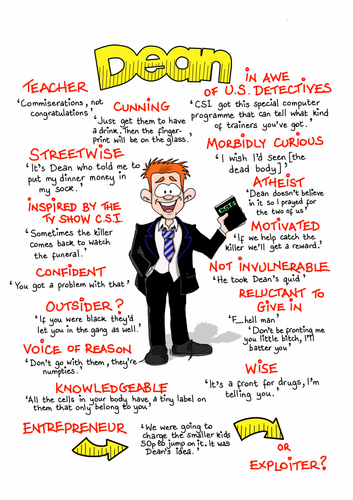 Dean
TEACHER
'Commiserations, not
congratulations'
CUNNING
'Just get them to have
a drink. Then the finger-
print will be on the glass.'
STREETWISE
'It's Dean who told me to
put my dinner money in
my sock.'
INSPIRED BY THE
TV SHOW C.S.I.
'Sometimes the killer
comes back to watch
the funeral.'
CONFIDENT
'You got a problem with that'
OUTSIDER?
'If you were black they'd
let you in the gang as well.'
VOICE OF REASON
'Don't go with them, they're
numpties.'
KNOWLEDGEABLE
'All the cells in your body have a tiny label on
them that only belong to you'
ENTREPRENEUR
'We were going to
charge the smaller kids
50p to jump on it. It was
Dean's idea.'
IN AWE
OF U.S. DETECTIVES
'CSI got this special computer
programme that can tell what kind
of trainers you've got.'
MORBIDLY CURIOUS
'I wish I'd seen [the
dead body]'
ATHEIST
'Dean doesn't believe
in it so I prayed for
the two of us'
MOTIVATED
'If we help catch the
killer we'll get a reward.'
NOT INVULNERABLE
'He took Dean's quid'
RELUCTANT TO
GIVE IN
'F__hell man'
'Don't be fronting me
you little bitch, I'll
batter you'
WISE
'It's a front for drugs, I'm
telling you.'
OR
EXPLOITER?
CSI